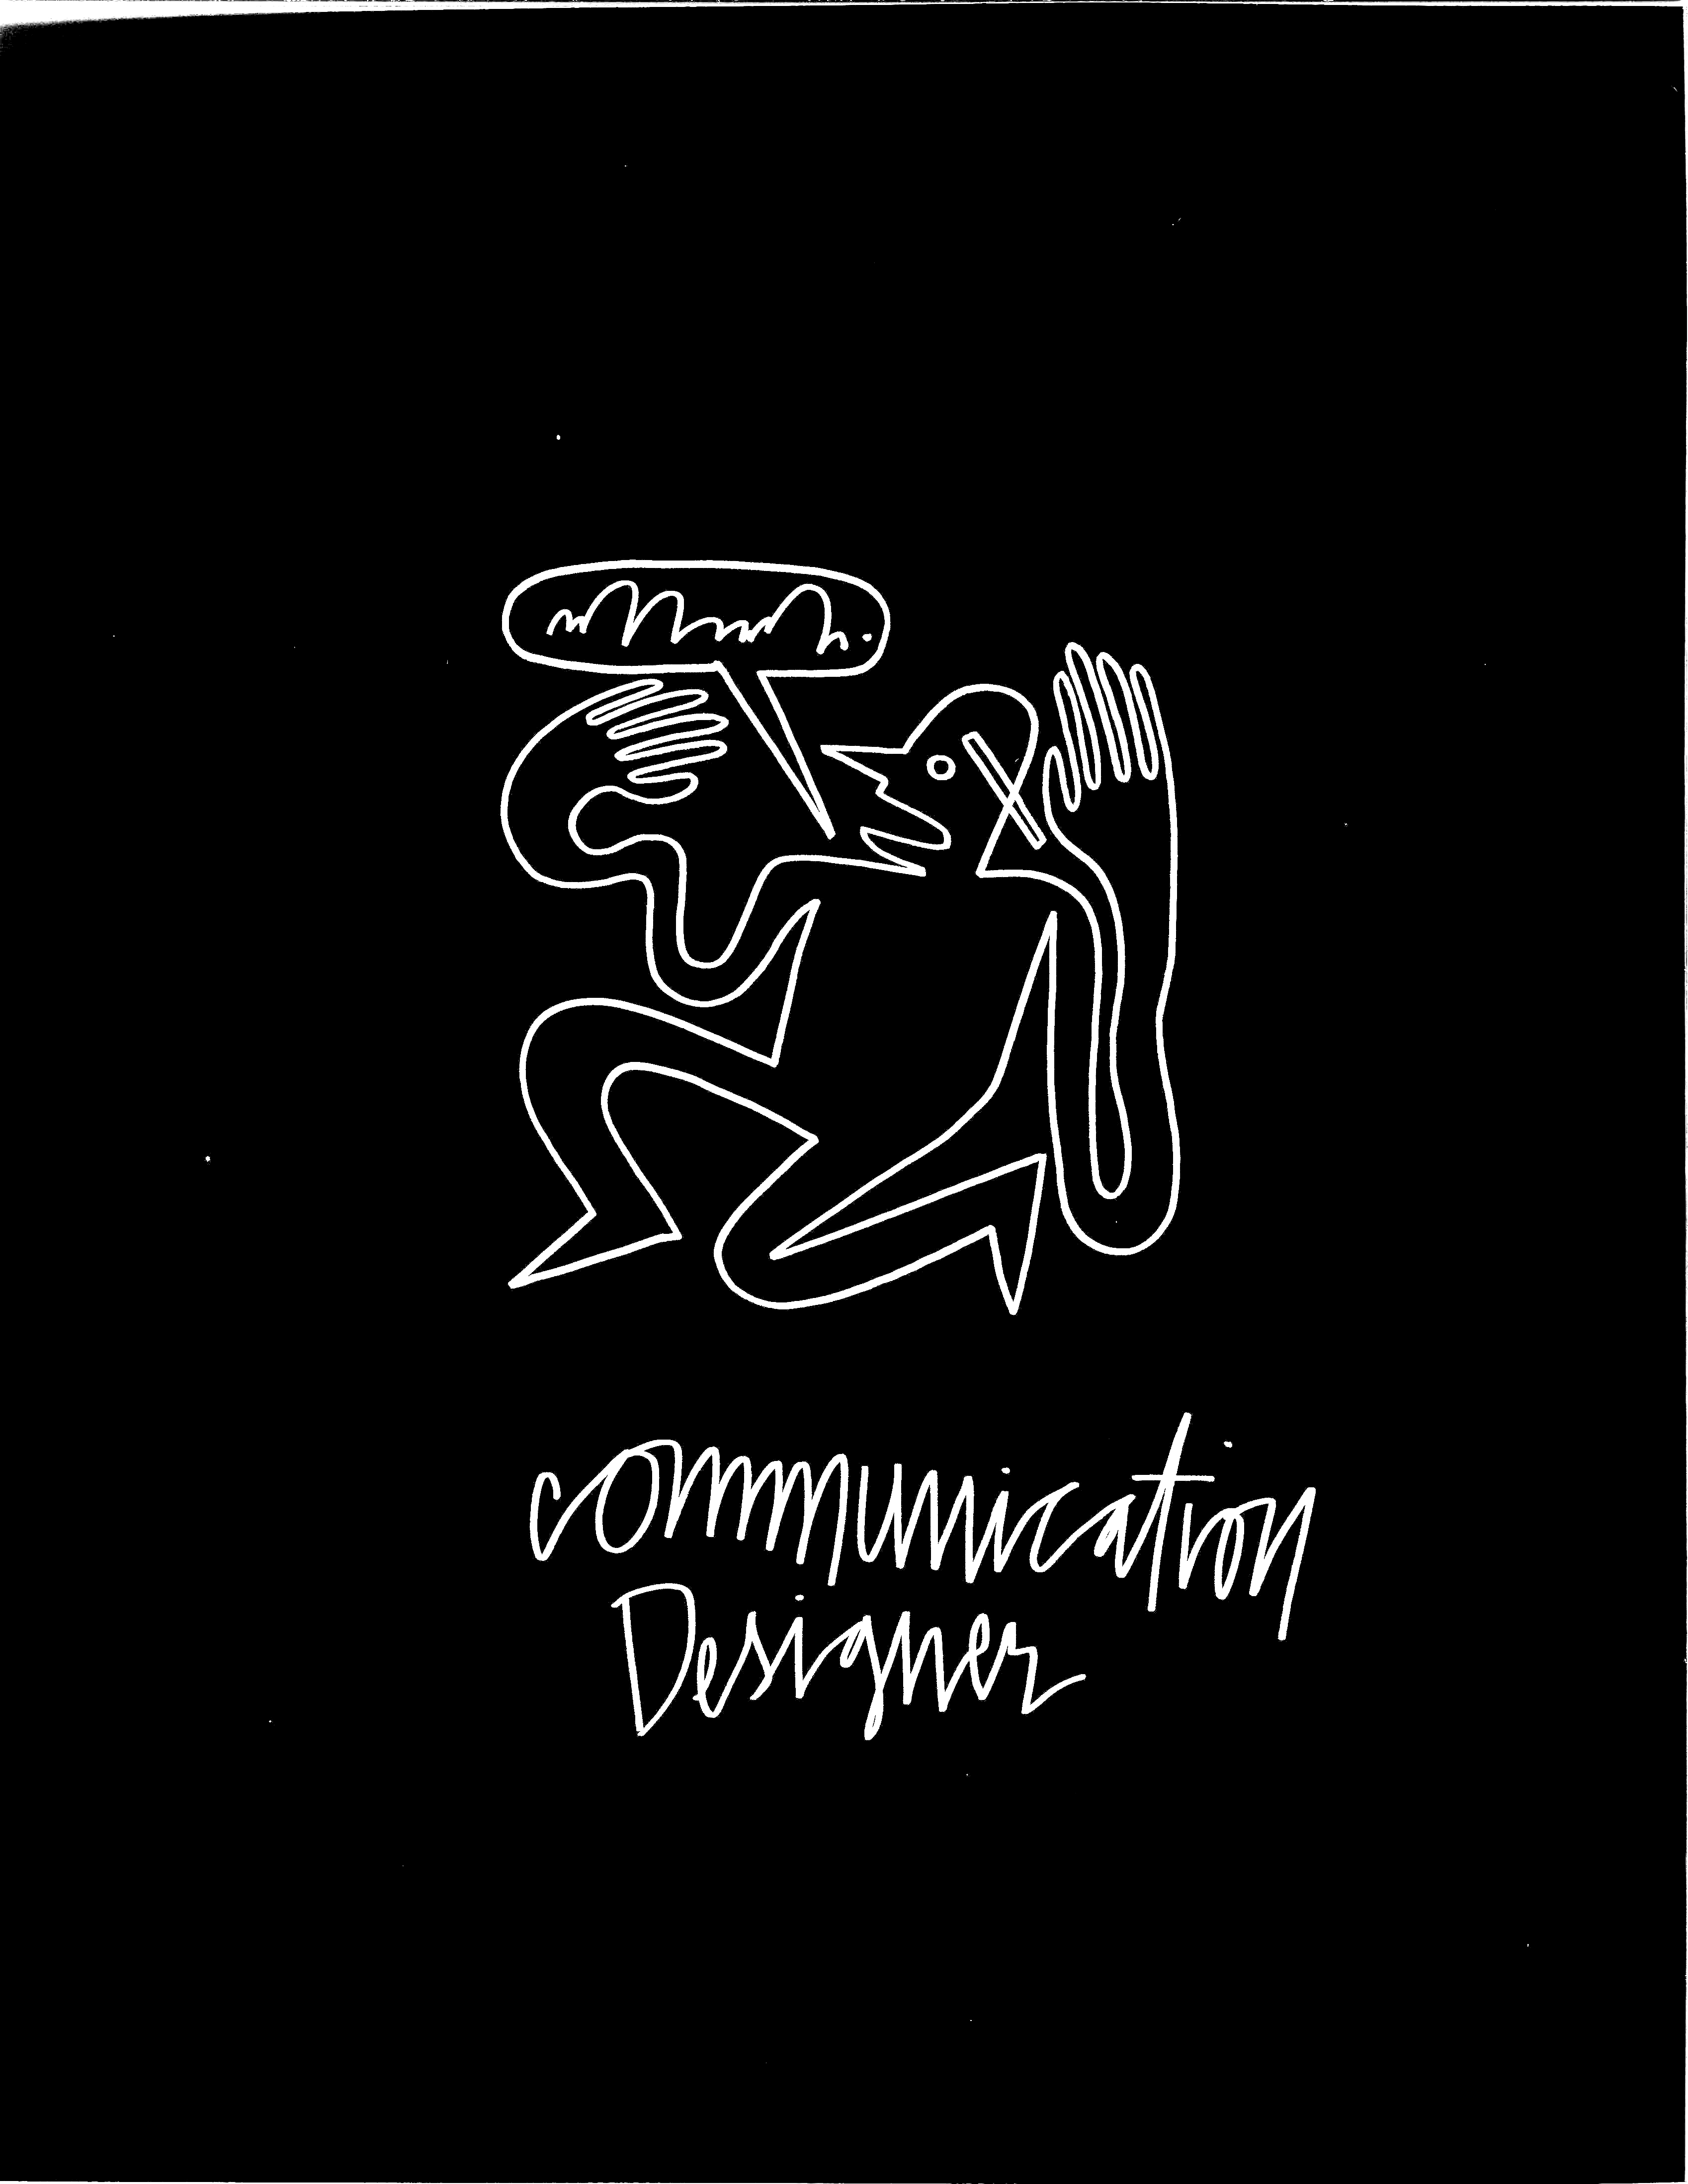 communication
Designer